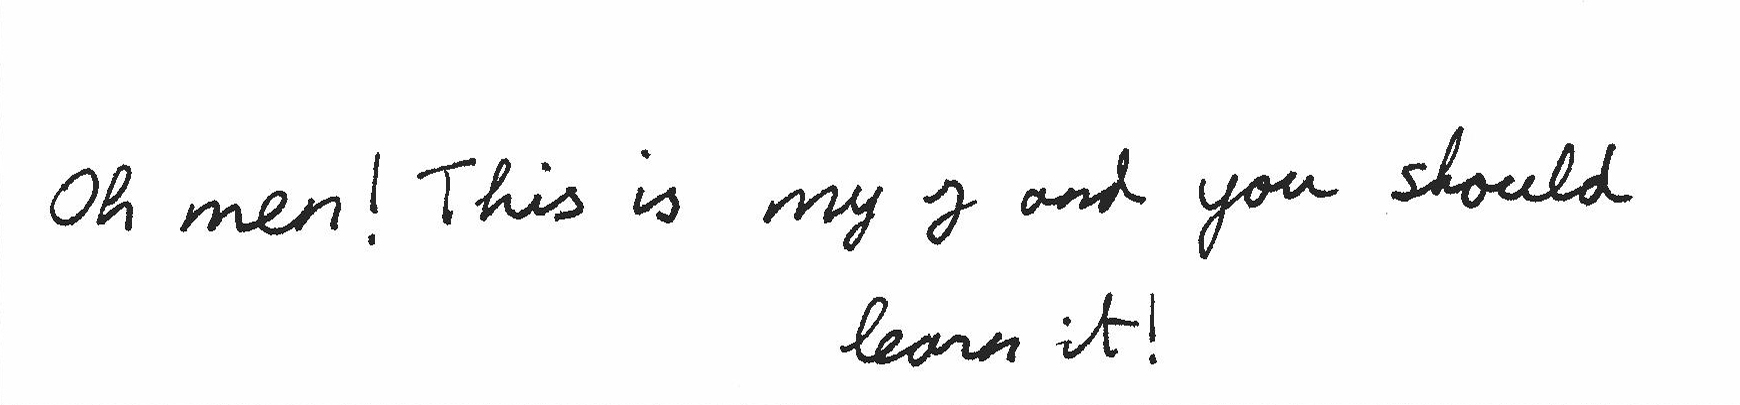 Oh men! This is my y and you should
learn it!